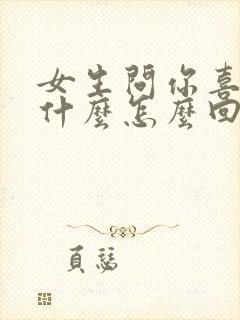 女生問你喜
什麼怎麼回
頁慤